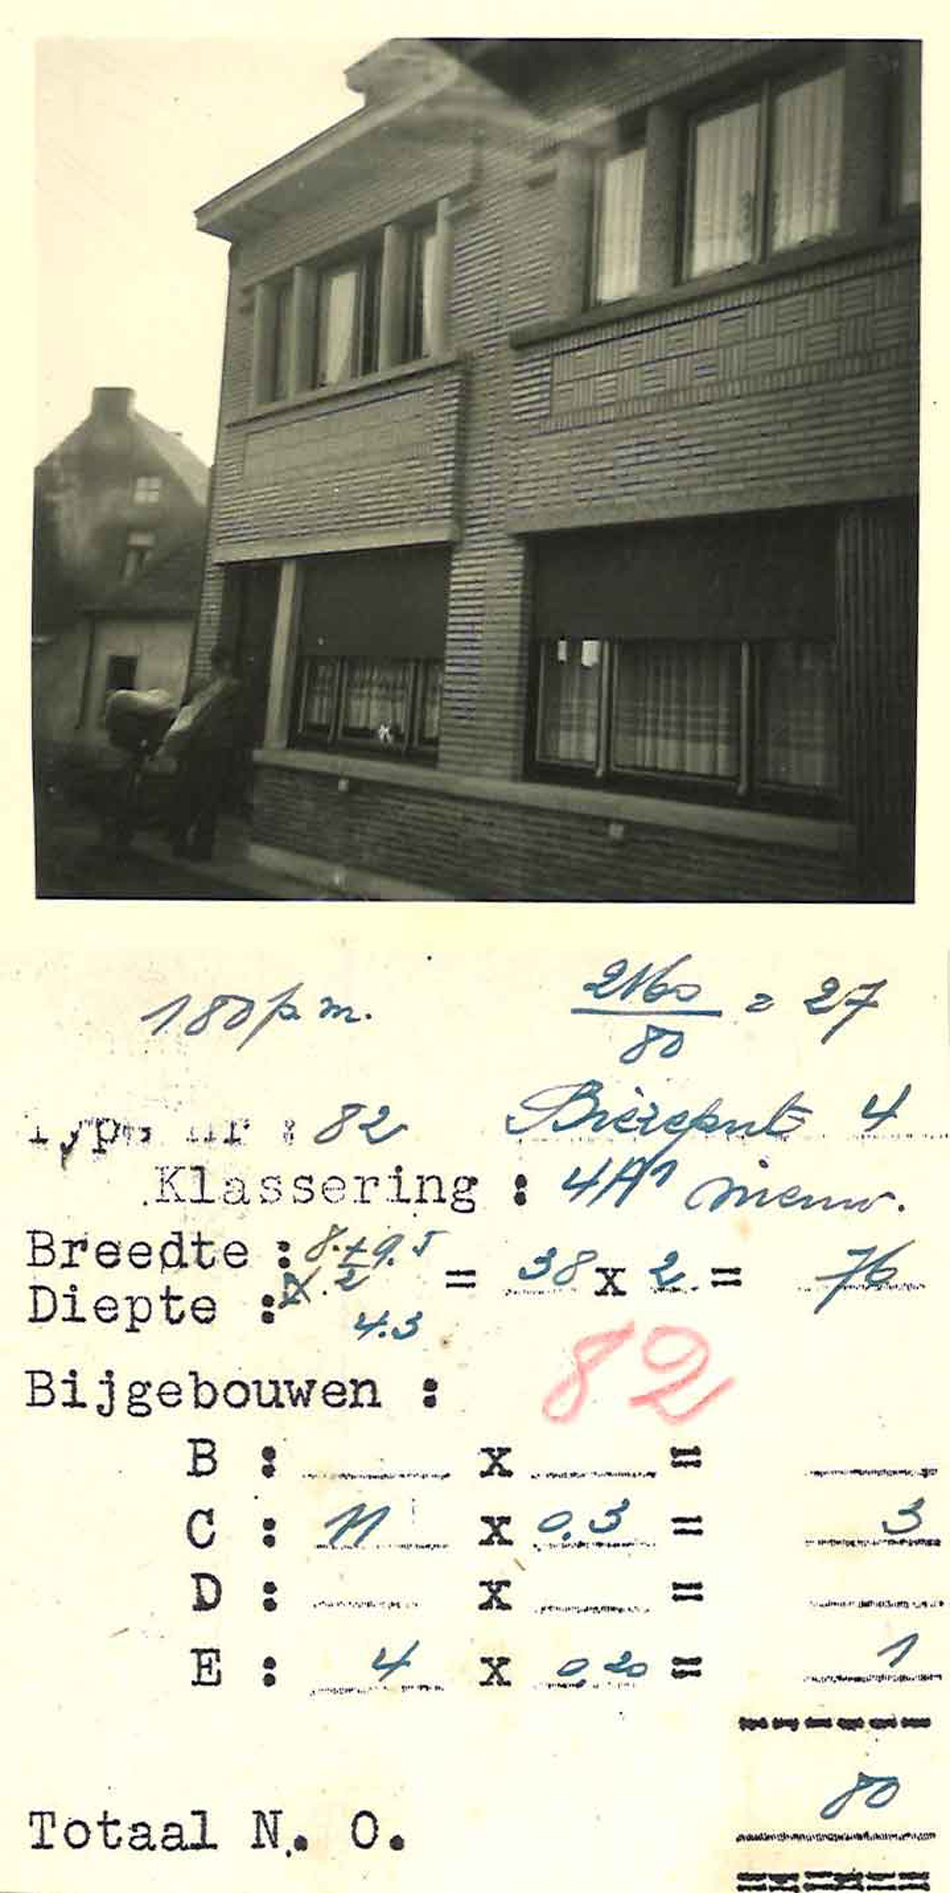 180 p.m. 2160/80 = 27
Type nr : 82 Bièzeput 4
Klassering : 4A1 nieuw.
Breedte : 8.+9.5
2 = 38 x 2 = 76
Diepte : 4.3
Bijgebouwen : 82
B : x =
C : 11 x 0.3 = 3
D : x =
E : 4 x 0.20 = 1
80
Totaal N. O.